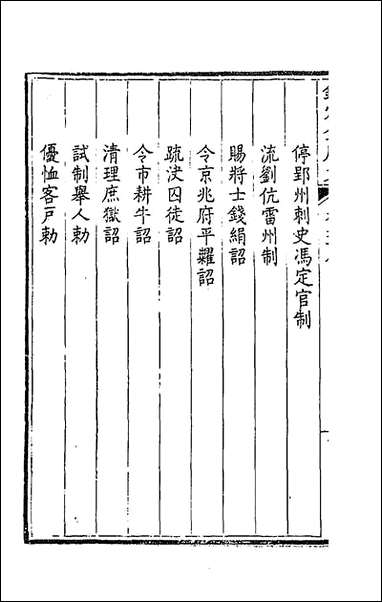 停郢州刺史馮定官制
流劉伉雷州制
賜將士錢絹詔
令京兆府平糶詔
疏決囚徒詔
令市耕牛詔
清理庶獄詔
試制舉人勅
優恤客戸勅